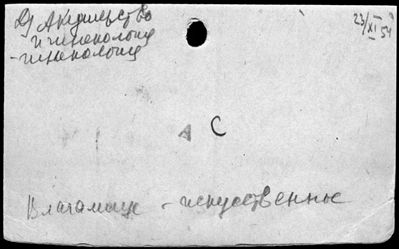 Д Акушерство
и гинекология
- гинекология
23/XI 54
А С
Влагалище - искусственные